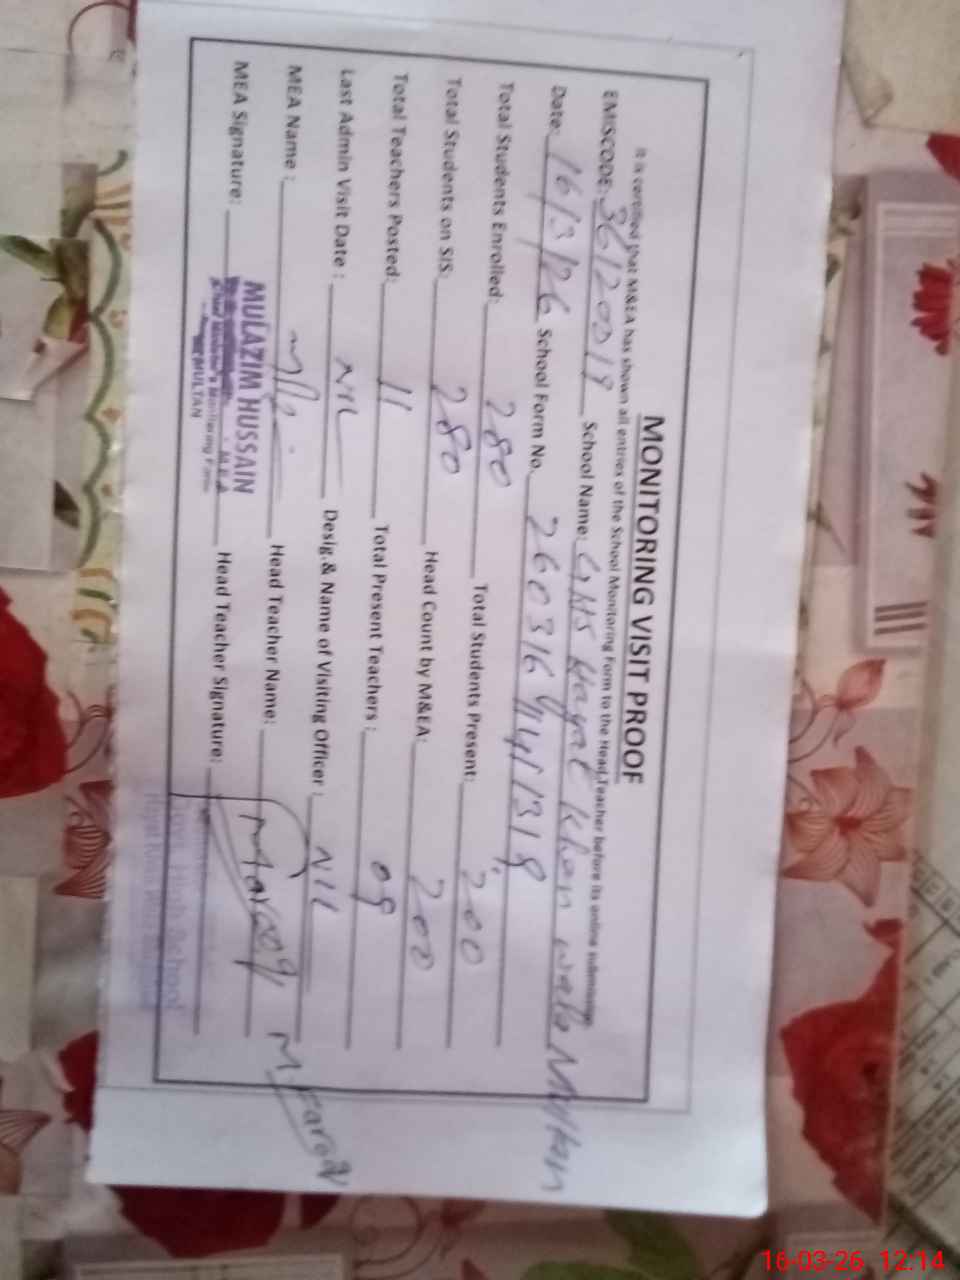 MONITORING VISIT PROOF
It is certified that M&EA has shown all entries of the School Monitoring Form to the Head Teacher before its online submission
EMISCODE: 36120019 School Name: GHS Hayat Khan wala Multan
Date: 16/3/26 School Form No. 260316
Total Students Enrolled: 280 Total Students Present: 200
Total Students on SIS: 280 Head Count by M&EA: 200
Total Teachers Posted: 11 Total Present Teachers: 09
Last Admin Visit Date: NIL Desig.& Name of Visiting Officer: NIL
MEA Name: Head Teacher Name: M. Farooq
MEA Signature: Head Teacher Signature:
MULAZIM HUSSAIN
M.E.A
Chief Minister's Monitoring Force
MULTAN
High School
16-03-26 12:14